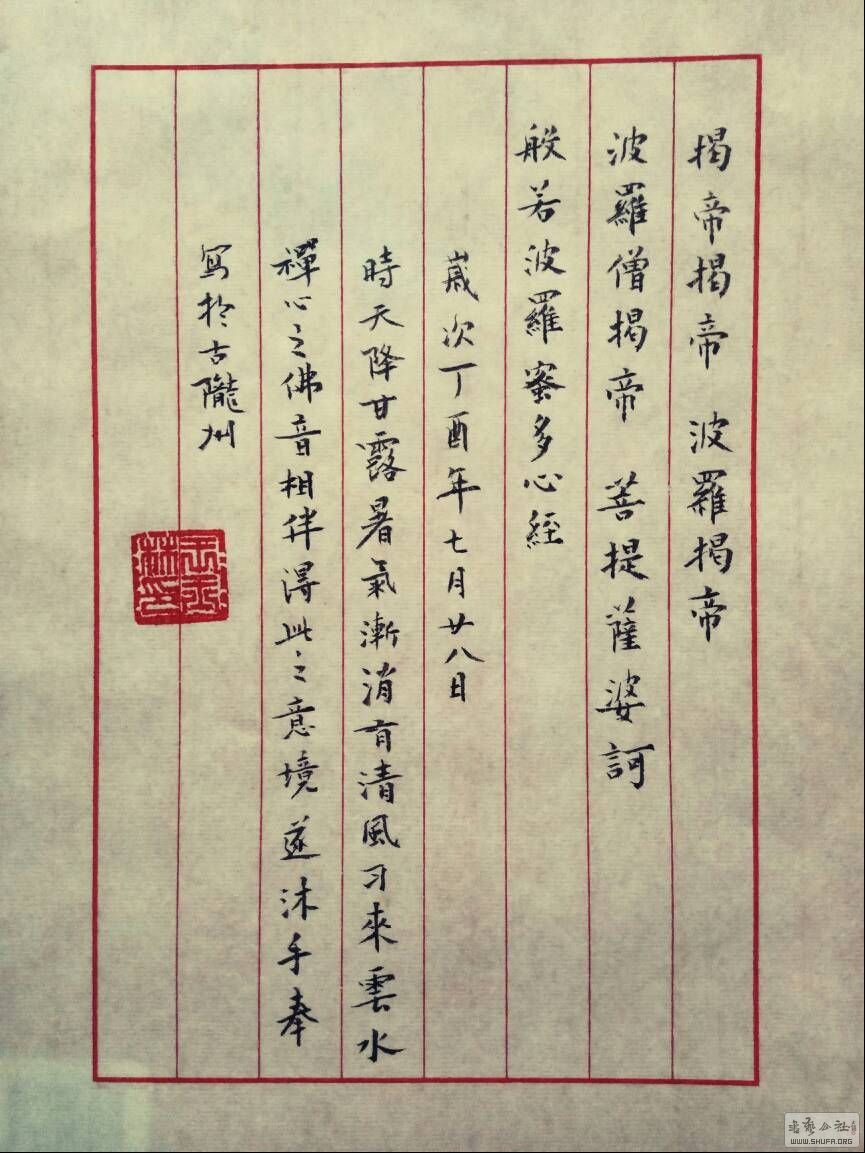 揭帝揭帝 波羅揭帝
波羅僧揭帝 菩提薩婆訶
般若波羅蜜多心經
嵗次丁酉年七月廿八日
時天降甘露暑氣漸消有清風习來雲水
禪心之佛音相伴得此之意境遂沐手奉
寫於古隴州
WWW.SHUFA.ORG